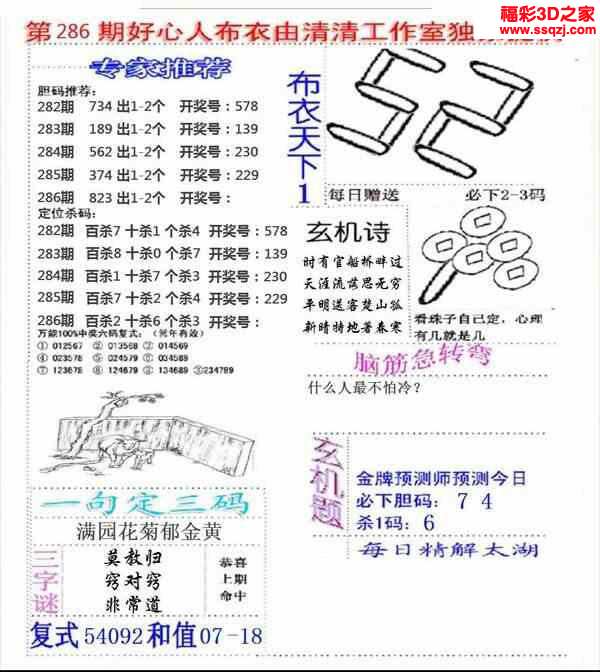 福彩3D之家
www.ssqzj.com
第286期好心人布衣由清清工作室独
专家推荐
胆码推荐：
282期 734 出1-2个 开奖号：578
283期 189 出1-2个 开奖号：139
284期 562 出1-2个 开奖号：230
285期 374 出1-2个 开奖号：229
286期 823 出1-2个 开奖号：
定位杀码：
282期 百杀7 十杀1 个杀4 开奖号：578
283期 百杀8 十杀0 个杀7 开奖号：139
284期 百杀1 十杀7 个杀3 开奖号：230
285期 百杀7 十杀2 个杀4 开奖号：229
286期 百杀2 十杀6 个杀3 开奖号：
万能100%中奖六码复式：（常年有效）
① 012567 ② 013568 ③ 014569
④ 023578 ⑤ 024579 ⑥ 034589
⑦ 123678 ⑧ 124679 ⑨ 134689 ⑩234789
布衣天下1
52
每日赠送 必下2-3码
玄机诗
时有官船桥畔过
天涯流落思无穷
平明送客楚山孤
新晴特地著春寒
看珠子自己定，心理
有几就是几
脑筋急转弯
什么人最不怕冷？
一句定三码
满园花菊郁金黄
三字谜
莫教归
窍对窍
非常道
恭喜
上期
命中
玄机题
金牌预测师预测今日
必下胆码： 7 4
杀1码：6
每日精解太湖
复式54092和值07-18